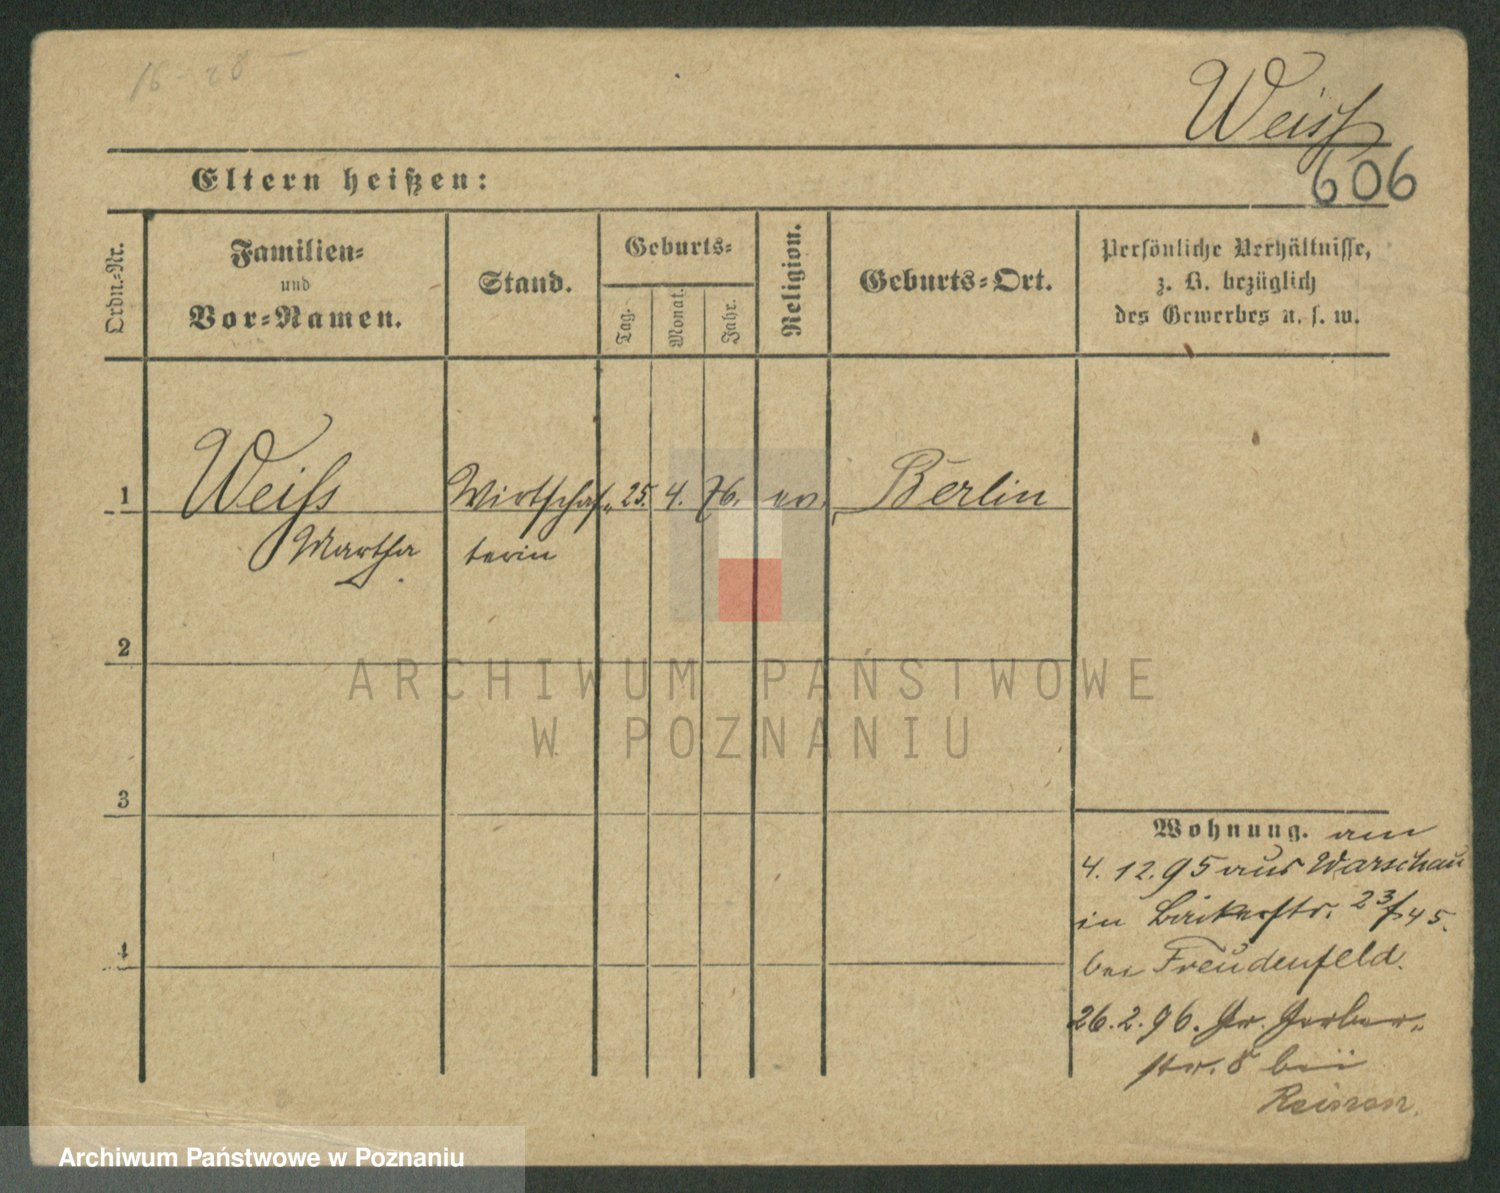 16-28
Weiß
Eltern heißen:
606
Ordn.-Nr.
Familien-
und
Vor-Namen.
Stand.
Geburts-
Tag.
Monat.
Jahr.
Religion.
Geburts-Ort.
Persönliche Verhältnisse,
z. B. bezüglich
des Gewerbes u. s. w.
1 Weiß Wirtschaf- 25. 4. 76. ev. Berlin
Martha terin
2
ARCHIWUM PAŃSTWOWE
W POZNANIU
3
Wohnung. am
4.12.95 aus Warschau
in Bäckerstr. 23/45.
bei Freudenfeld.
4
26.2.96. Gr. Gerber-
str. 8 bei
Archiwum Państwowe w Poznaniu